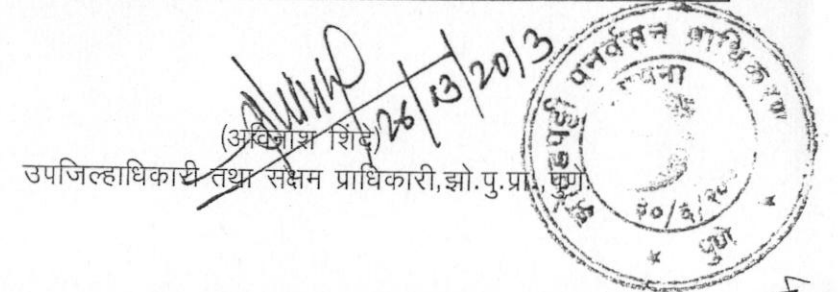 26/13/2013
(अविनाश शिंदे)
उपजिल्हाधिकारी तथा सक्षम प्राधिकारी,झो.पु.प्रा.,पुणे.
झोपडपट्टी पुनर्वसन प्राधिकरण
स्थापना
३०/६/२०
पुणे